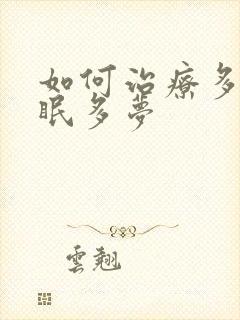 如何治療多
眠多夢
雲翹